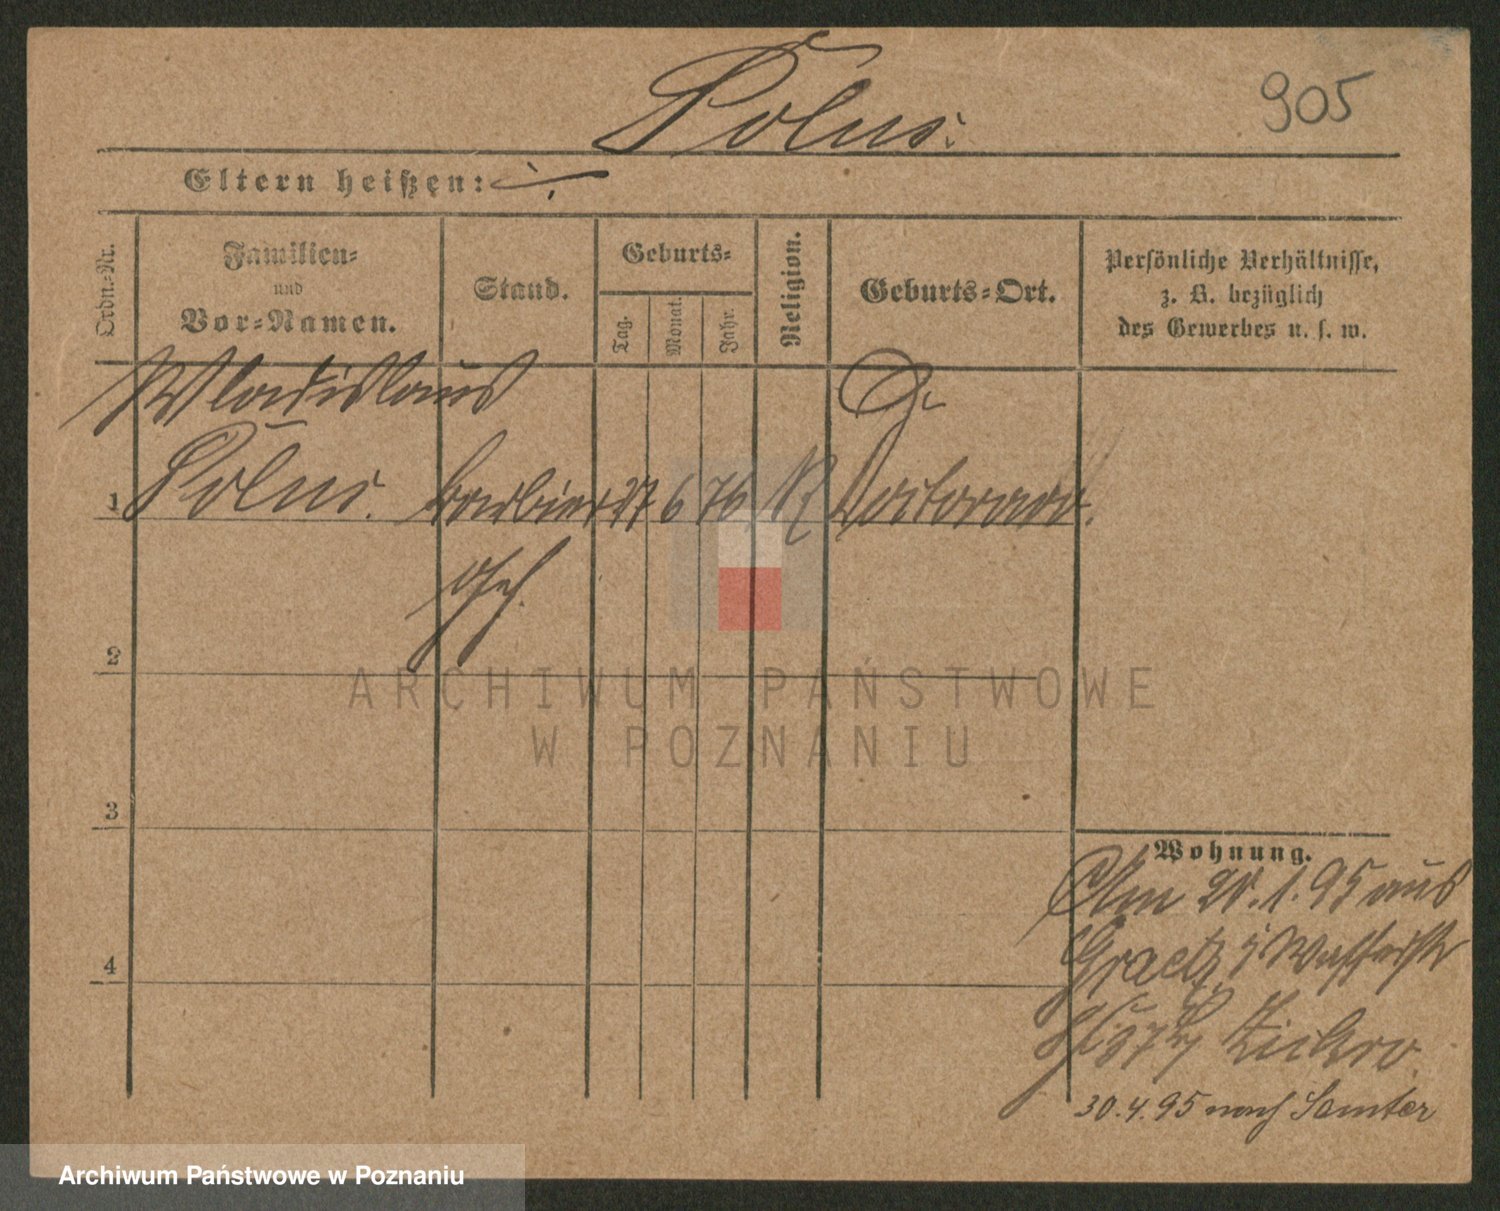 Polus.
905
Eltern heißen:
Ordn.-Nr.
Familien-
und
Vor-Namen.
Stand.
Geburts-
Tag.
Monat.
Jahr.
Religion.
Geburts-Ort.
Persönliche Verhältnisse,
z. B. bezüglich
des Gewerbes u. s. w.
Wladislaus
1 Polus. barbier 27 6 76 K
Geh.
2
3
4
Wohnung.
Am 20.1.95 aus
Graetz
30.4.95 nach Samter
ARCHIWUM PAŃSTWOWE
W POZNANIU
Archiwum Państwowe w Poznaniu